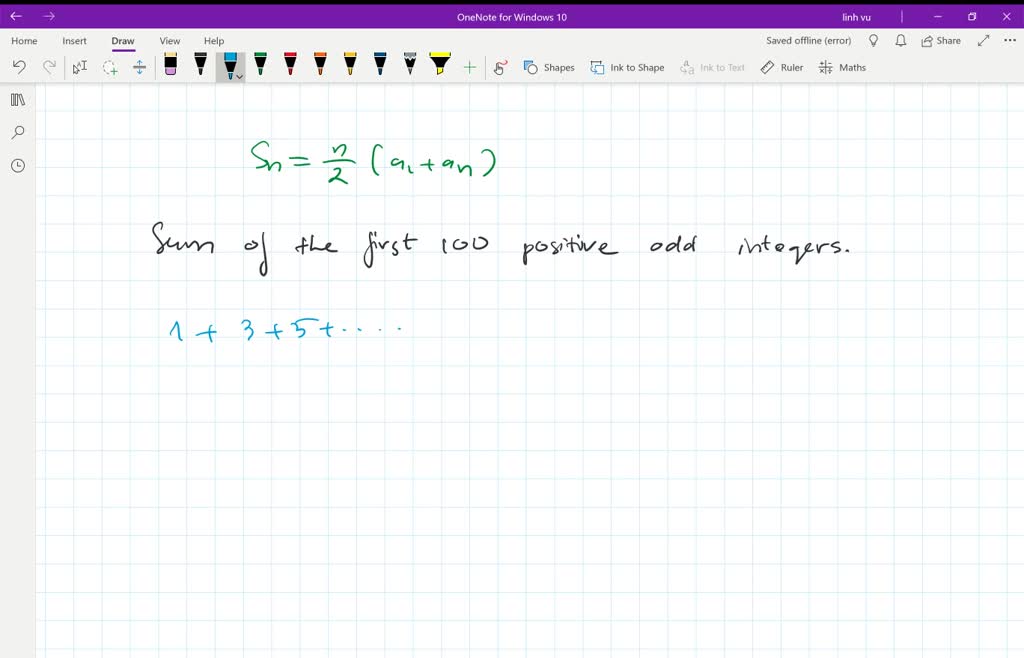 OneNote for Windows 10
linh vu
Home Insert Draw View Help
Saved offline (error) Share
Shapes Ink to Shape Ink to Text Ruler Maths
Sn = n/2 (a1 + an)
Sum of the first 100 positive odd integers.
1 + 3 + 5 + .....